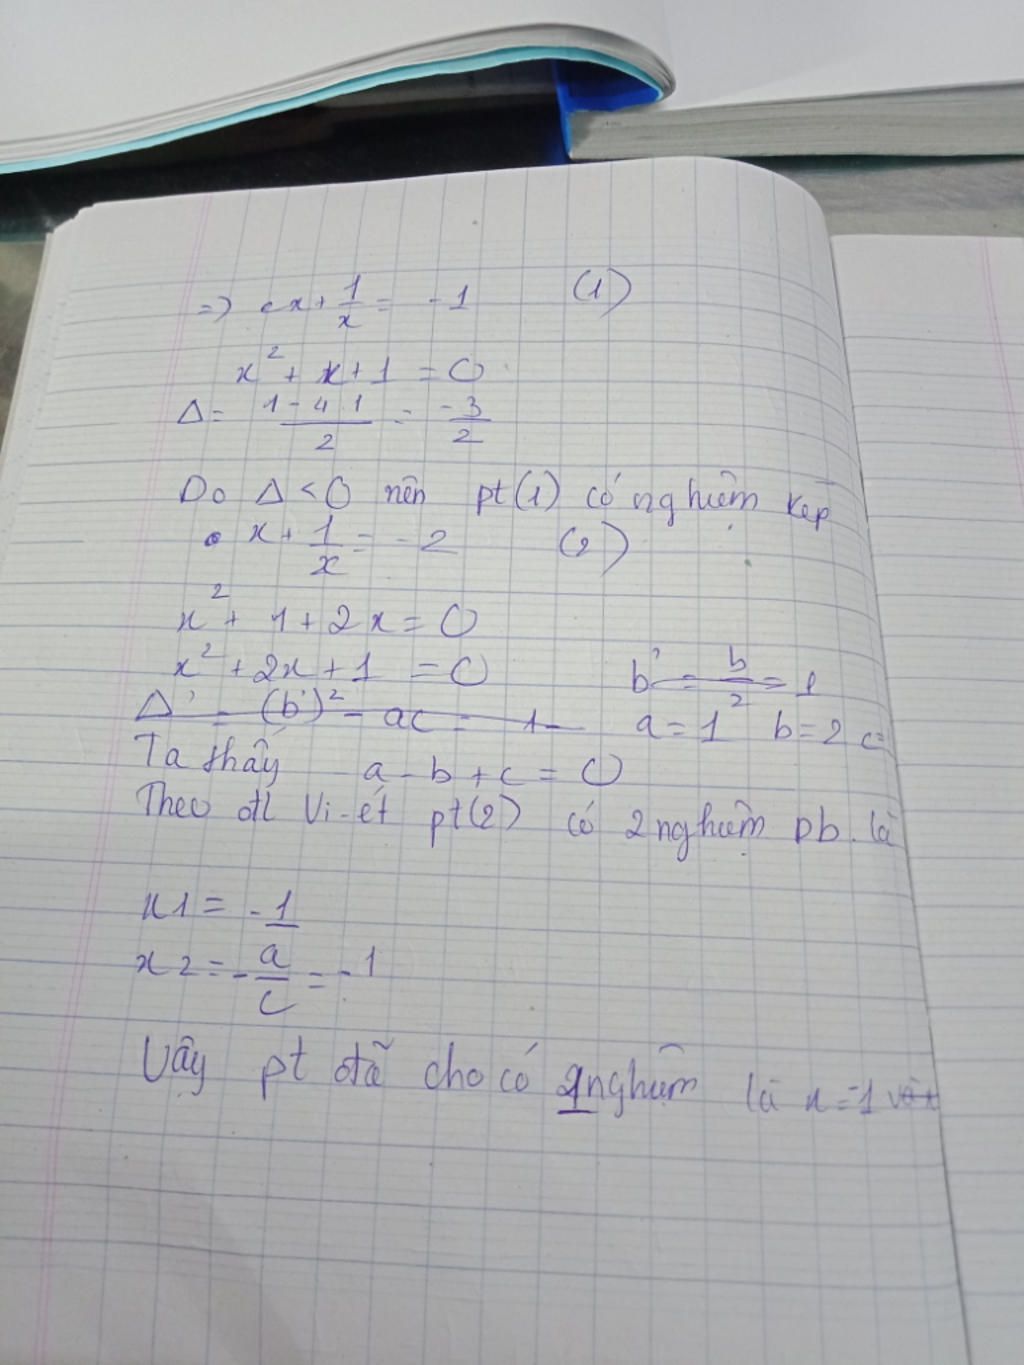 => x + 1/x = -1 (1)
x² + x + 1 = 0
Δ = (1 - 4.1)/2 = -3/2
Do Δ < 0 nên pt (1) có nghiệm kép
• x + 1/x = -2 (2)
x² + 1 + 2x = 0
x² + 2x + 1 = 0 b' = b/2 = 1
Δ' = (b')² - ac = 1 a = 1 b = 2 c =
Ta thấy a - b + c = 0
Theo đl Vi-ét pt (2) có 2 nghiệm pb. là
x1 = -1
x2 = -a/c = -1
Vậy pt đã cho có 1 nghiệm là x = -1